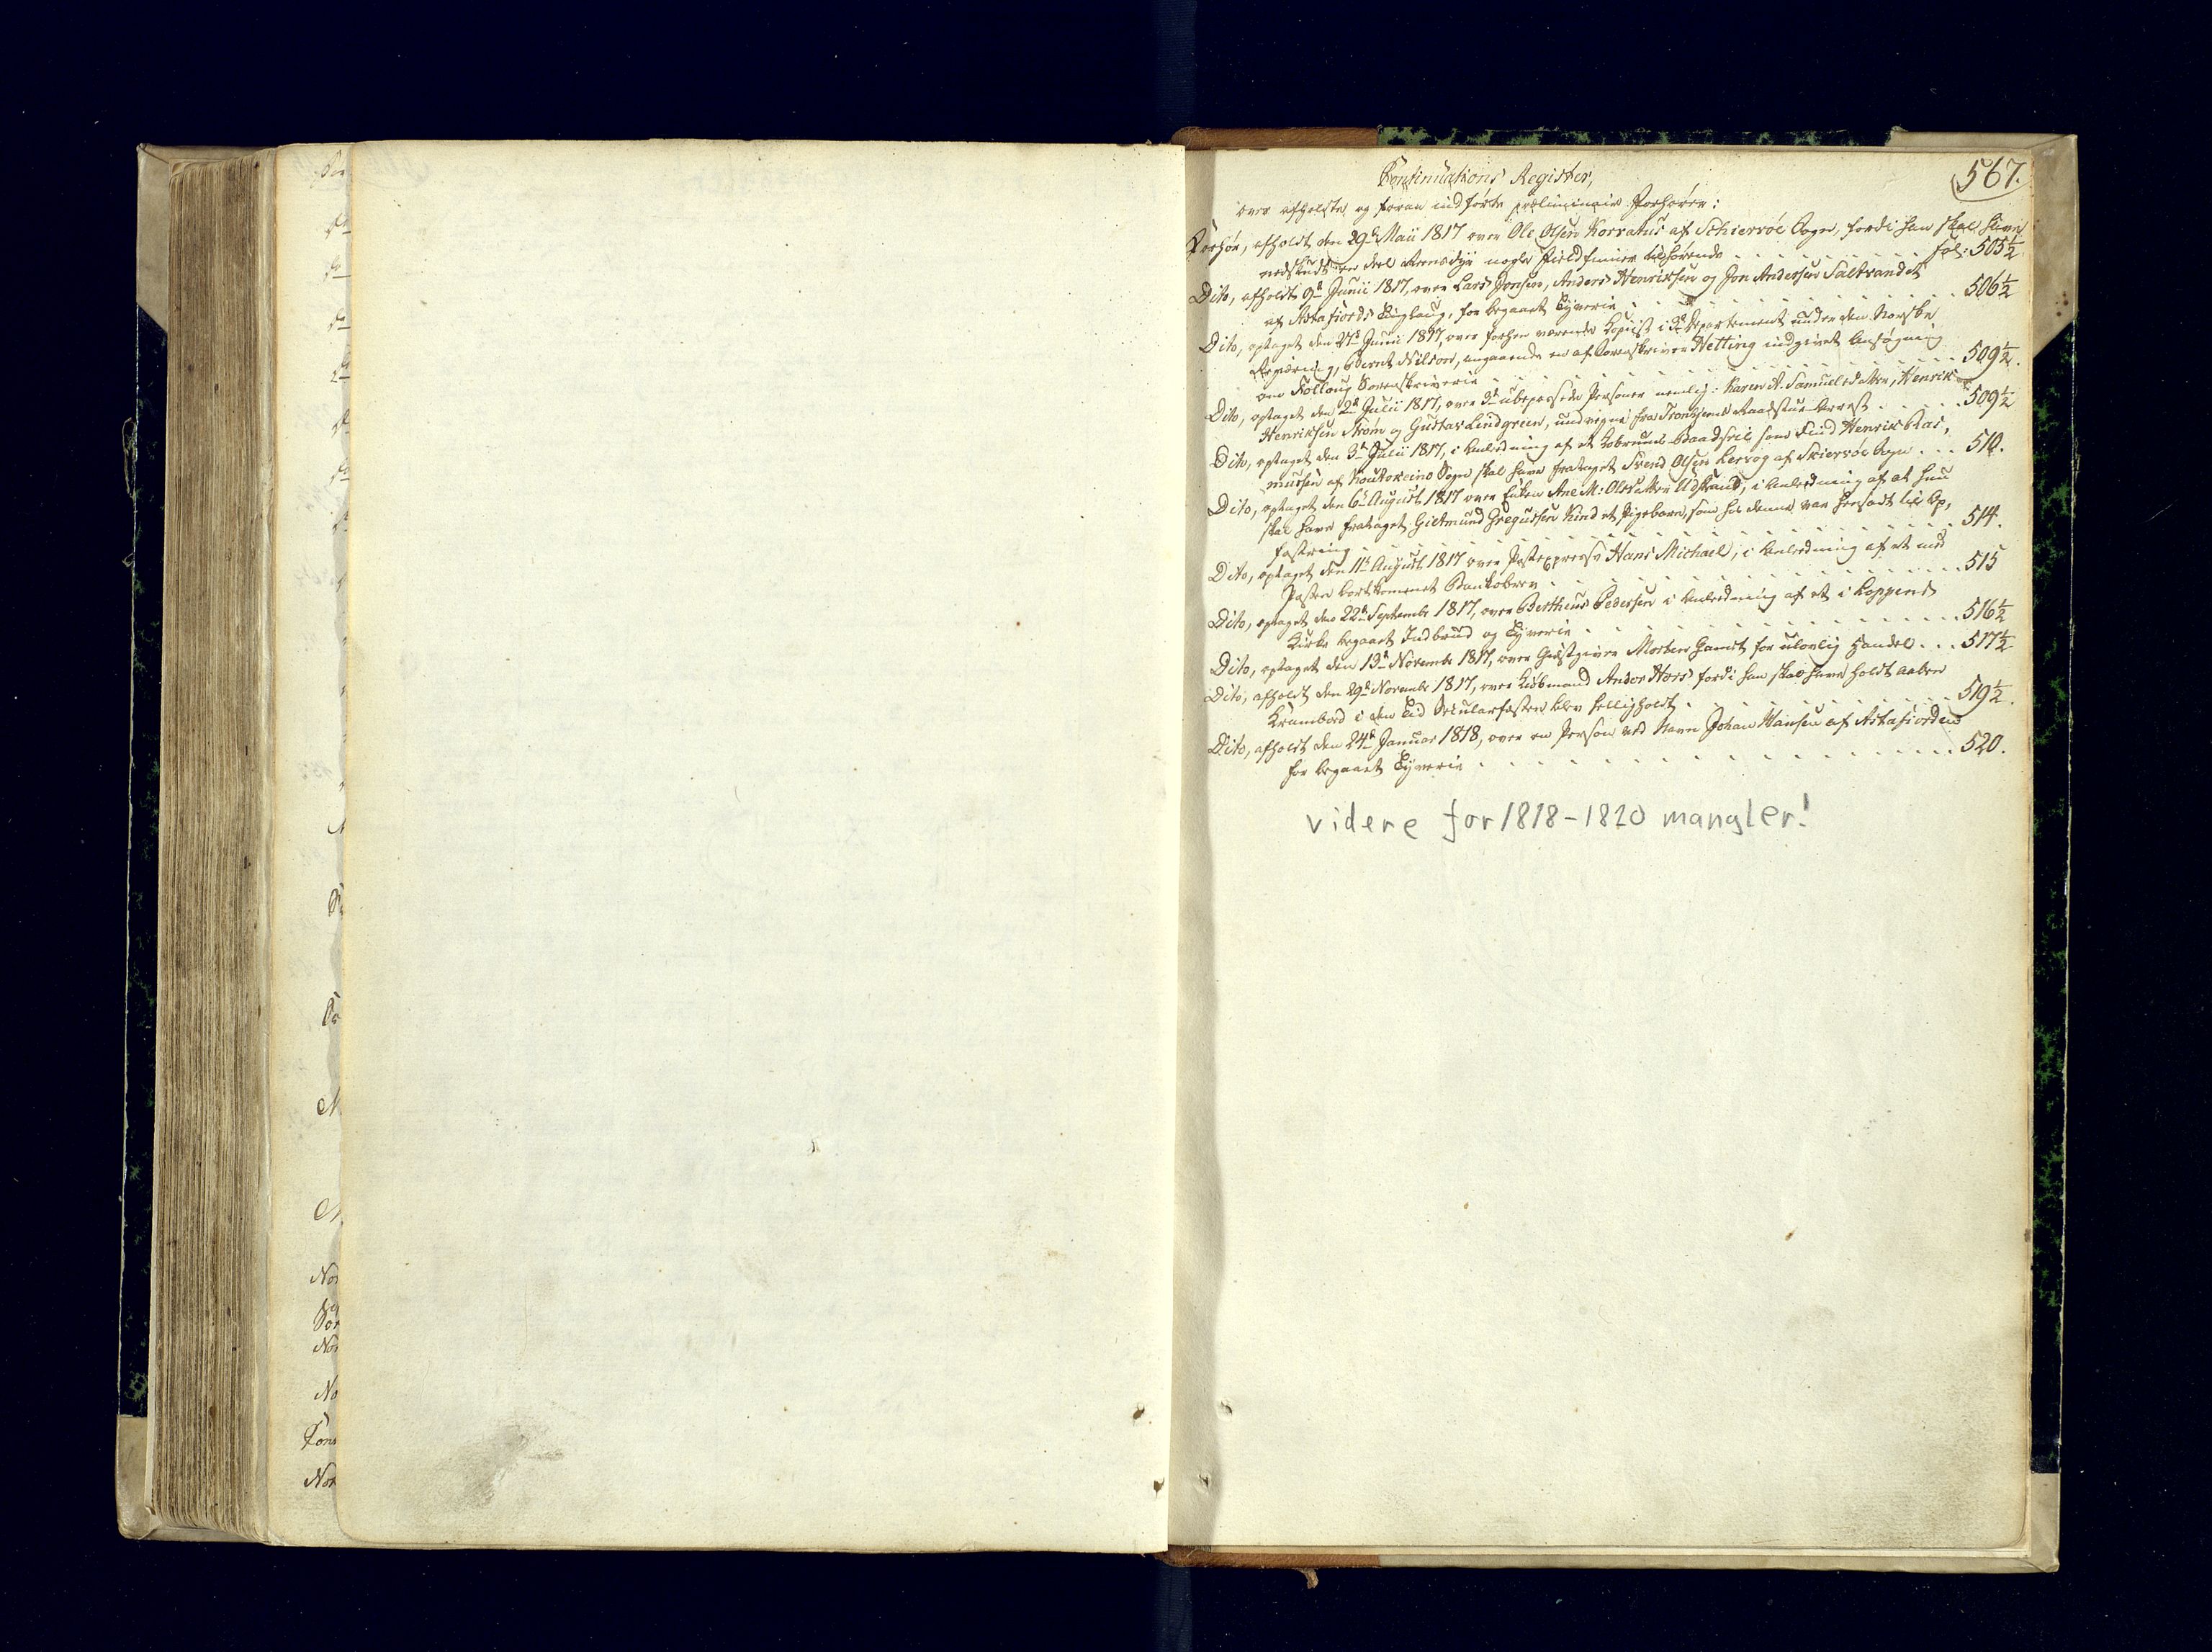 567.
Continuations Register,
over afholdte og foran indførte præliminaire Forhører:
Forhør, afholdt den 29de Maii 1817 over Ole Olsen Korvatus af Schiervøe Sogn, fordi han skal have
nedskudt en deel Reensdyr nogle Fieldfinner tilhørende . . . . . . . fol: 505½
Dito, afholdt 9de Junii 1817, over Lars Jonsen, Anders Henriksen og Jon Andersen Saltvandet
af Astafiords Tinglaug, for begaaet Tyverie . . . . . . . 506½
Dito, optaget den 27de Junii 1817, over forhen værende Copiist i 3de Departement under den Norske
Regiering, Bernt Nilson, angaaende en af Sorenskriver Hetting indgivet Ansøgning
om Folloug Sorenskriverie . . . . . . . 509½.
Dito, optaget den 2de Julii 1817, over 3de ubepassede Personer nemlig: Karen A. Samuelsdatter, Henrik
Henriksen Strøm og Gustav Lindgreen, undvigne fra Tronhjems Raadstue-Arrest . . . . 509½
Dito, optaget den 3de Julii 1817, i Anledning af et Baadseil som Find Henrik Ras,
mussen af Koutokeino Sogn skal have frataget Svend Olsen af Skiervøe Sogn . . . 510.
Dito, optaget den 6te August 1817 over Enken Ane M: Olsdatter Udstrand, i Anledning af at hun
skal have frataget Gietmund Gregussen Kind et Pigebarn, som hos denne var hensadt til Op,
fostring . . . . . . . 514.
Dito, optaget den 11te August 1817 over Postexpress Hans Michael, i Anledning af et med
Posten bortkommet Bankobrev . . . . . . . 515
Dito, optaget den 22de Septembr 1817, over Bertheus Pedersen i Anledning af et i Loppens
Kirke begaaet Indbrud og Tyverie . . . . . . . 516½
Dito, optaget den 13de Novembr 1817, over Giestgiver Morten Hansen for ulovlig Handel . . . 517½
Dito, afholdt den 29de Novembr 1817, over Kiøbmand Andor Hors fordi han skal have holdt aaben
Krambod i den Tid Secularfesten blev helligholdt . . . . . . . 519½.
Dito, afholdt den 24de Januar 1818, over en Person ved Navn Johan Hansen af Astafiorden
for begaaet Tyverie . . . . . . . 520.
videre for 1818-1820 mangler!